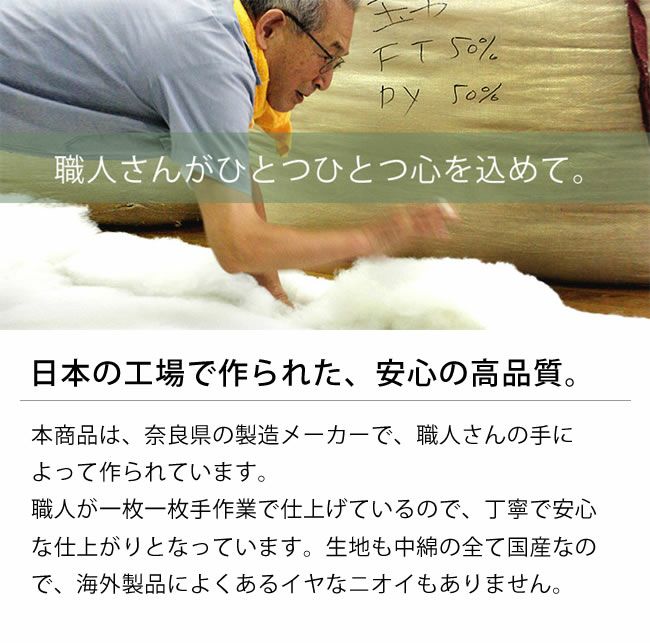 FT 50%
PY 50%
職人さんがひとつひとつ心を込めて。
日本の工場で作られた、安心の高品質。
本商品は、奈良県の製造メーカーで、職人さんの手に
よって作られています。
職人が一枚一枚手作業で仕上げているので、丁寧で安心
な仕上がりとなっています。生地も中綿の全て国産なの
で、海外製品によくあるイヤなニオイもありません。